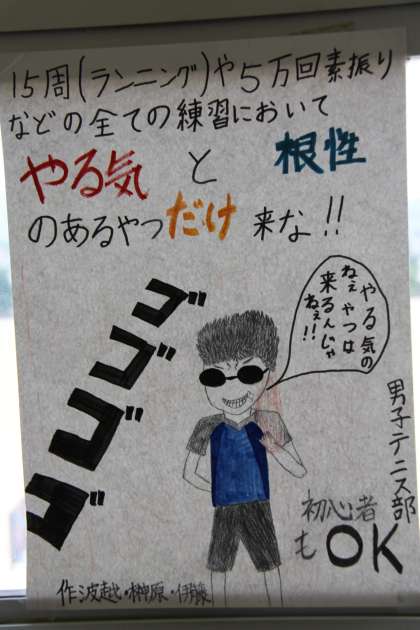 15周(ランニング)や5万回素振り
などの全ての練習において
やる気と根性
のあるやつだけ来な!!
ゴゴゴゴ
やる気の
ねぇやつは
来るんじゃ
ねぇ!!
男子テニス部
初心者
もOK
作波越・榊原・伊藤